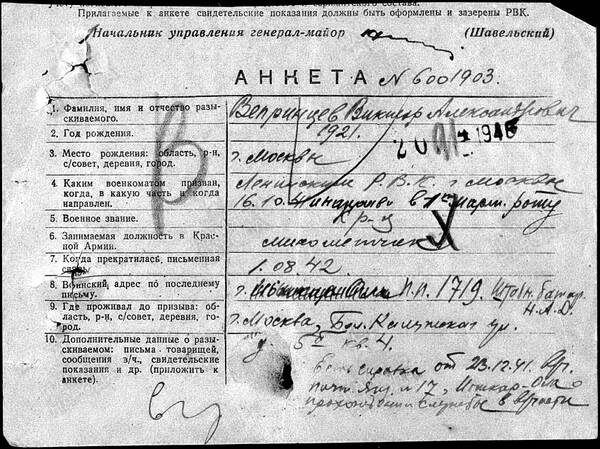 Прилагаемые к анкете свидетельские показания должны быть оформлены и заверены РВК.
Начальник управления генерал-майор (Шавельский)
АНКЕТА № 6001903.
1. Фамилия, имя и отчество разы-
скиваемого.
Вепринцев Виктор Александрович
2. Год рождения.
1921.
20 1946
3. Место рождения: область, р-н,
с/совет, деревня, город.
г. Москвы
4. Каким военкоматом призван,
когда, в какую часть и когда
направлен.
Ленинским Р.В.К. г. Москвы
16.10. в роту
5. Военное звание.
Кр-ц
6. Занимаемая должность в Крас-
ной Армии.
миномётчик
7. Когда прекратилась письменная
связь.
1.08.42
8. Воинский адрес по последнему
письму.
п.п. 1719.
9. Где проживал до призыва: об-
ласть, р-н, с/совет, деревня, го-
род.
г. Москва, Бол. Калужская ул.
кв. 4.
10. Дополнительные данные о разы-
скиваемом: письма товарищей,
сообщения з/ч., свидетельские
показания и др. (приложить к
анкете).
справка от 23.12.41.
почт. ящ. № 17, Йошкар-Ола о
прохождении службы в